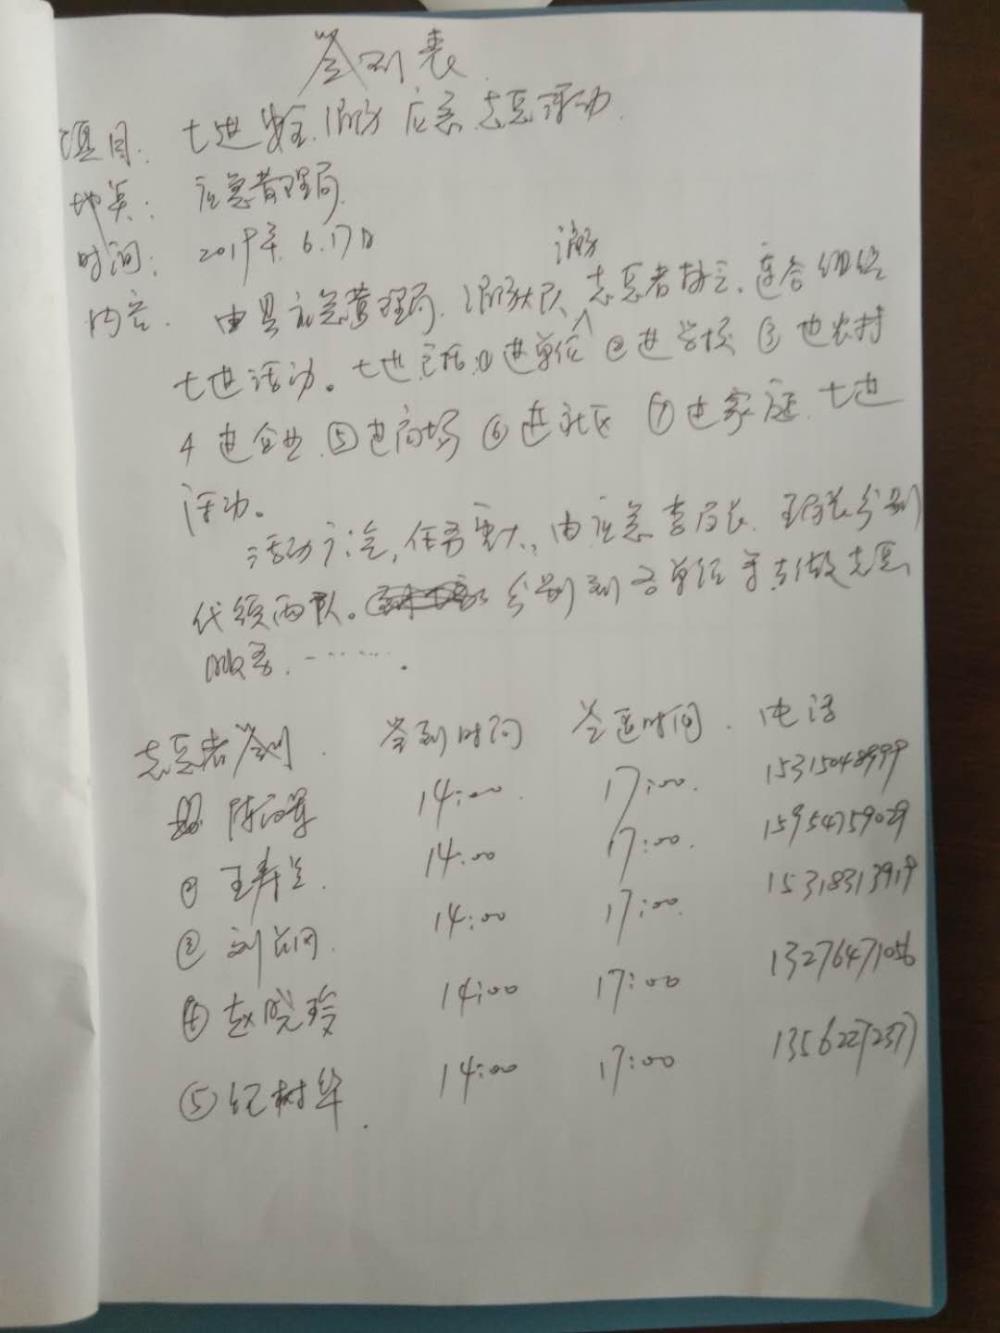 签到表
项目：七进安全消防应急志愿活动.
地点：应急管理局.
时间：2019年.6.17日
消防
内容.由县应急管理局.消防大队志愿者协会.联合组织
七进活动。七进包括①进单位②进学校③进农村
4进企业⑤进商场⑥进社区⑦进家庭.七进
活动。
活动广泛,任务重大,由应急李局长.王局长分别
代领两队。分别到各单位去做志愿
服务.……..
志愿者签到.签到时间 签退时间.电话
14:00. 17:00. 15315048999
② 王寿兰. 14:00 17:00. 15954759029
③ 14:00 17:00. 15318313919
④ 赵晓玲 14:00 17:00 13276471056
⑤ 纪树华. 14:00 17:00 13562272377